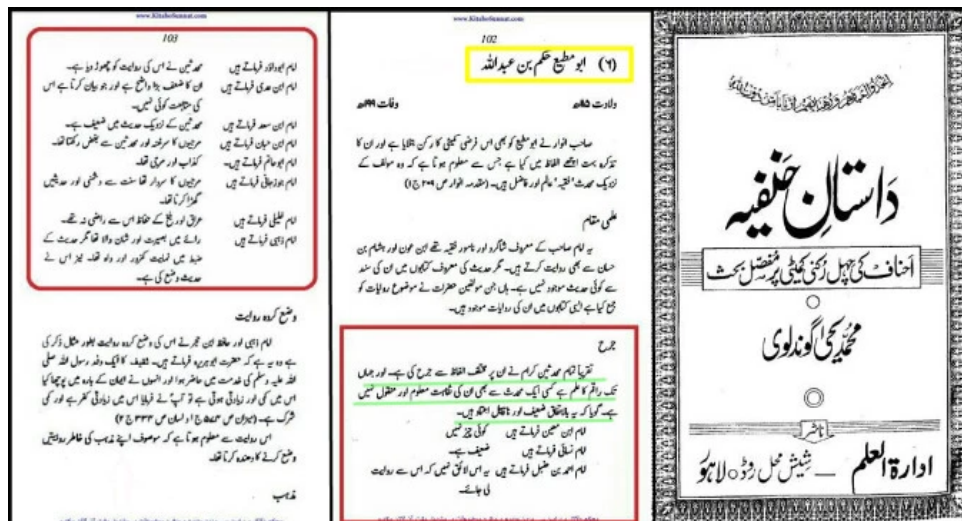 www.KitaboSunnat.com
داستانِ حنفیہ
احناف کی چہل رکنی کمیٹی پر مفصل بحث
محمد یحیٰی گوندلوی
ناشر
ادارۃ العلم ـــ شیش محل روڈ ○ لاہور
www.KitaboSunnat.com
102
(٦) ابو مطیع حکم بن عبداللہ
ولادت ٨٥ھ وفات ١٩٩ھ
صاحب انوار نے ابو مطیع کو بھی اس فرضی کمیٹی کا رکن بتلایا ہے اور ان کا
تذکرہ بہت اچھے الفاظ میں کیا ہے جس سے معلوم ہوتا ہے کہ وہ مولف کے
نزدیک محدث' فقیہ' عالم اور فاضل ہیں۔ (مقدمہ انوار ص ٢٠٩ ج ١)
علمی مقام
یہ امام صاحب کے معروف شاگرد اور نامور فقیہ تھے ابن عون اور ہشام بن
حسان سے بھی روایت کرتے ہیں۔ مگر حدیث کی معروف کتابوں میں ان کی سند
سے کوئی حدیث موجود نہیں ہے۔ ہاں جن مولفین حضرات نے موضوع روایات کو
جمع کیا ہے ایسی کتابوں میں ان کی روایات موجود ہیں۔
جرح
تقریباً تمام محدثین کرام نے ان پر مختلف الفاظ سے جرح کی ہے۔ اور جہاں
تک راقم کا علم ہے کسی ایک محدث سے بھی ان کی ثقاہت معلوم اور منقول نہیں
ہے۔ گویا کہ یہ بالاتفاق ضعیف اور ناقابل اعتماد ہیں۔
امام ابن معین فرماتے ہیں کوئی چیز نہیں
امام نسائی فرماتے ہیں ضعیف ہے۔
امام احمد بن حنبل فرماتے ہیں یہ اس لائق نہیں کہ اس سے روایت
لی جائے۔
www.KitaboSunnat.com
103
امام ابوداؤد فرماتے ہیں محدثین نے اس کی روایت کو چھوڑ دیا ہے۔
امام ابن عدی فرماتے ہیں ان کا ضعف بڑا واضح ہے اور جو بیان کرتا ہے اس
کی متابعت کوئی نہیں۔
امام ابن سعد فرماتے ہیں محدثین کے نزدیک حدیث میں ضعیف ہے۔
امام ابن حبان فرماتے ہیں مرجیوں کا سرغنہ اور محدثین سے بغض رکھتا تھا۔
امام ابوحاتم فرماتے ہیں۔ کذاب اور مرجی تھا۔
امام جوزجانی فرماتے ہیں مرجیوں کا سردار تھا سنت سے دشمنی اور حدیثیں
گھڑا کرتا تھا۔
امام خلیلی فرماتے ہیں عراق اور بلخ کے حفاظ اس سے راضی نہ تھے۔
امام ذہبی فرماتے ہیں رائے میں بصیرت اور شان والا تھا مگر حدیث کے
ضبط میں نہایت کمزور اور واہ تھا۔ نیز اس نے
حدیث وضع کی ہے۔
وضع کردہ روایت
امام ذہبی اور حافظ ابن حجر نے اس کی وضع کردہ روایت بطور مثال ذکر کی
ہے وہ یہ ہے کہ حضرت ابوہریرہ فرماتے ہیں۔ ثقیف کا ایک وفد رسول اللہ صلی
اللہ علیہ وسلم کی خدمت میں حاضر ہوا اور انہوں نے ایمان کے بارہ میں پوچھا کیا
اس میں کمی اور زیادتی ہوتی ہے تو آپ نے فرمایا اس میں زیادتی کفر ہے اور کمی
شرک ہے۔ (میزان ص ٥٧٤ ج ١ و لسان ص ٣٣٤ ج ٢)
اس روایت سے معلوم ہوتا ہے کہ موصوف اپنے مذہب کی خاطر روایتیں
وضع کرنے کا دھندہ کرتا تھا۔
مذہب